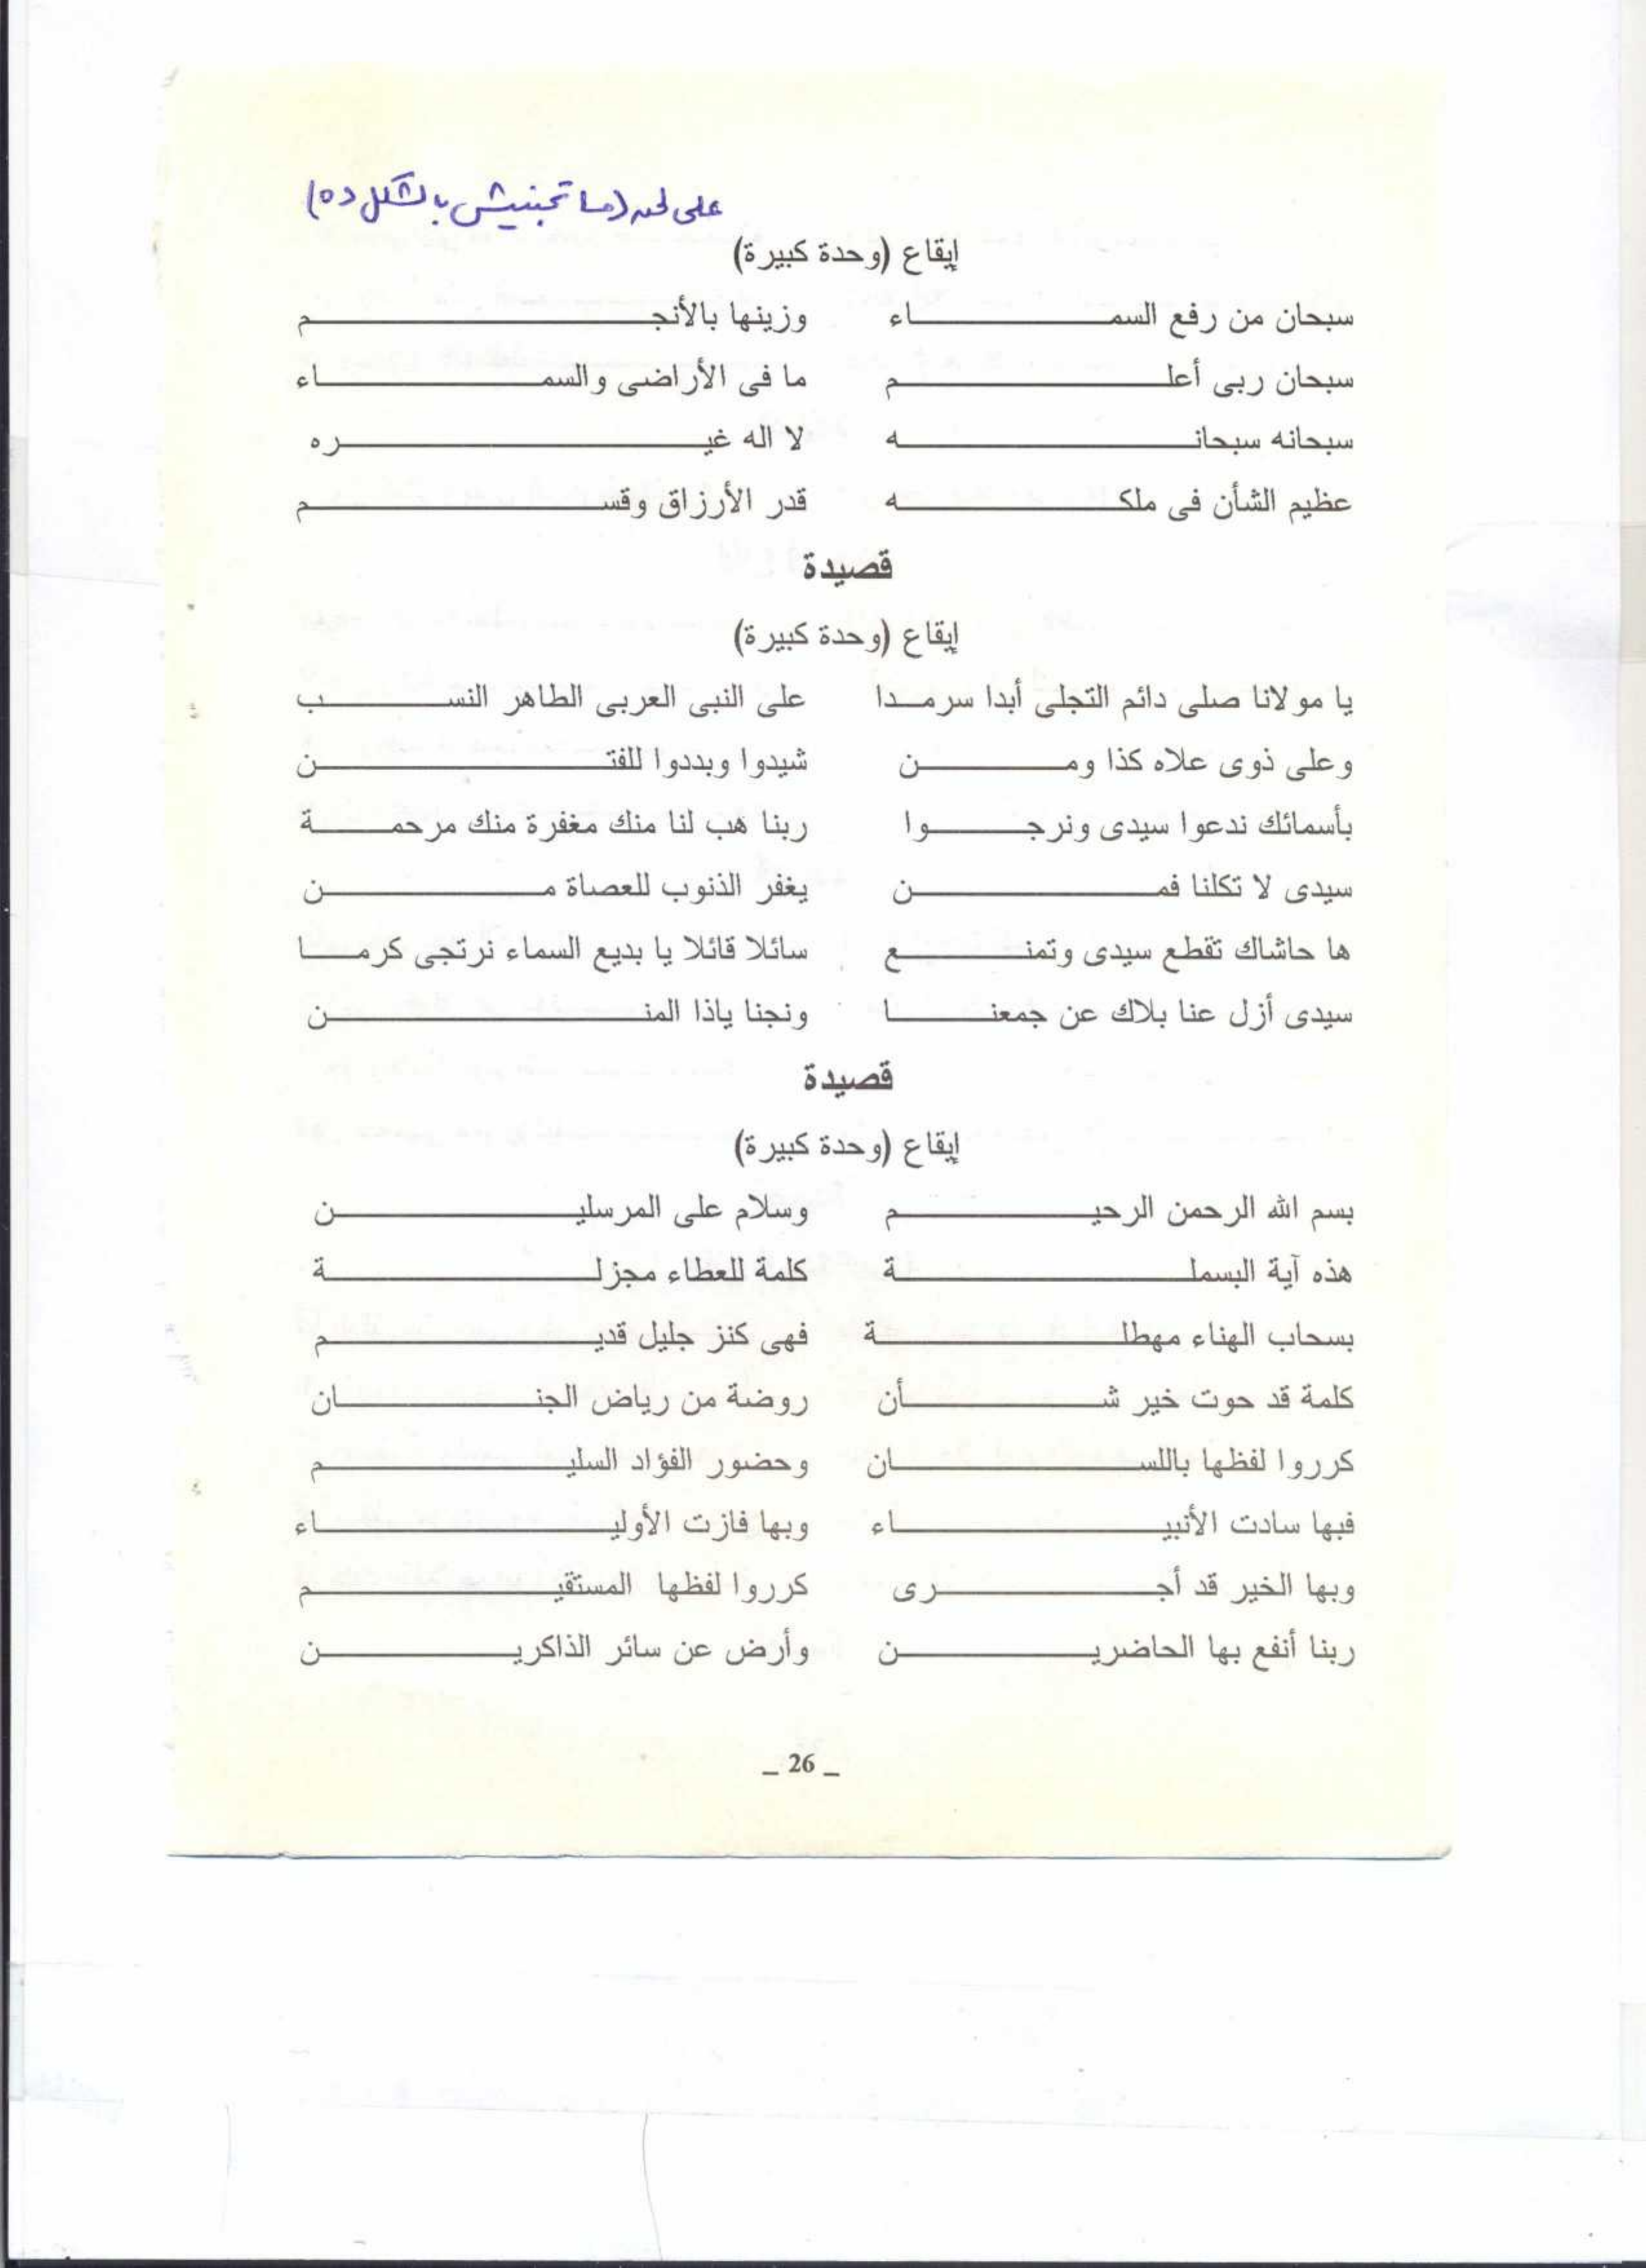 على لحن (ما تحبنيش بالشكل ده)
إيقاع (وحدة كبيرة)
سبحان من رفع السمــــــاء وزينها بالأنجــــــم
سبحان ربى أعلــــــم ما فى الأراضى والسمــــــاء
سبحانه سبحانــــــه لا اله غيــــــره
عظيم الشأن فى ملكــــــه قدر الأرزاق وقســــــم
قصيدة
إيقاع (وحدة كبيرة)
يا مولانا صلى دائم التجلى أبدا سرمــدا على النبى العربى الطاهر النســــــب
وعلى ذوى علاه كذا ومــــــن شيدوا وبددوا للفتــــــن
بأسمائك ندعوا سيدى ونرجــــــوا ربنا هب لنا منك مغفرة منك مرحمــــــة
سيدى لا تكلنا فمــــــن يغفر الذنوب للعصاة مــــــن
ها حاشاك تقطع سيدى وتمنــــــع سائلا قائلا يا بديع السماء نرتجى كرمــــــا
سيدى أزل عنا بلاك عن جمعنــــــا ونجنا ياذا المنــــــن
قصيدة
إيقاع (وحدة كبيرة)
بسم الله الرحمن الرحيــــــم وسلام على المرسليــــــن
هذه آية البسملــــــة كلمة للعطاء مجزلــــــة
بسحاب الهناء مهطلــــــة فهى كنز جليل قديــــــم
كلمة قد حوت خير شــــــأن روضة من رياض الجنــــــان
كرروا لفظها باللســــــان وحضور الفؤاد السليــــــم
فبها سادت الأنبيــــــاء وبها فازت الأوليــــــاء
وبها الخير قد أجــــــرى كرروا لفظها المستقيــــــم
ربنا أنفع بها الحاضريــــــن وأرض عن سائر الذاكريــــــن
_ 26 _